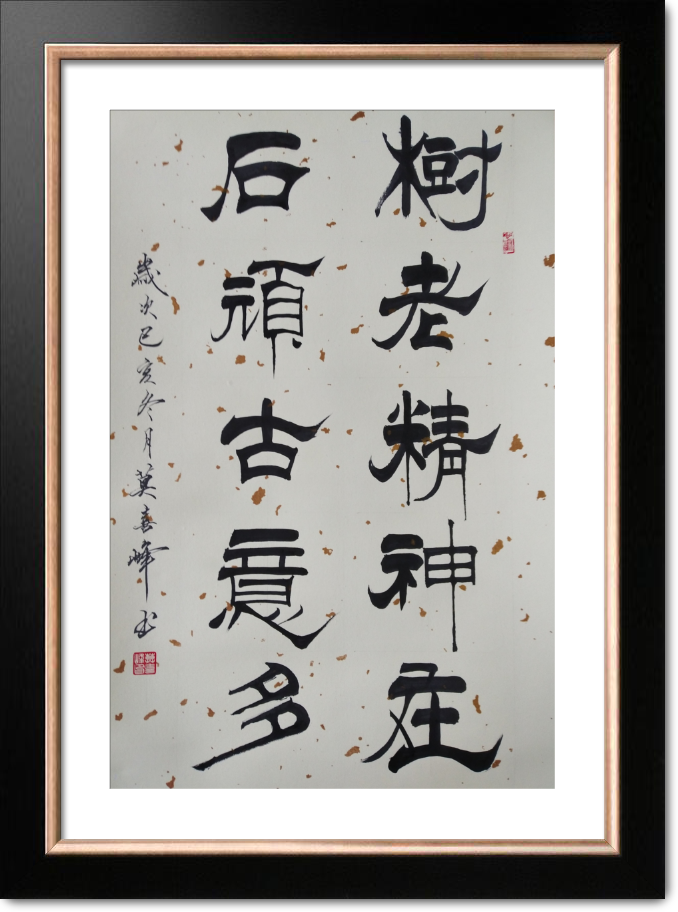 樹老精神在
石頑古意多
歲次己亥冬月莫喜峰書